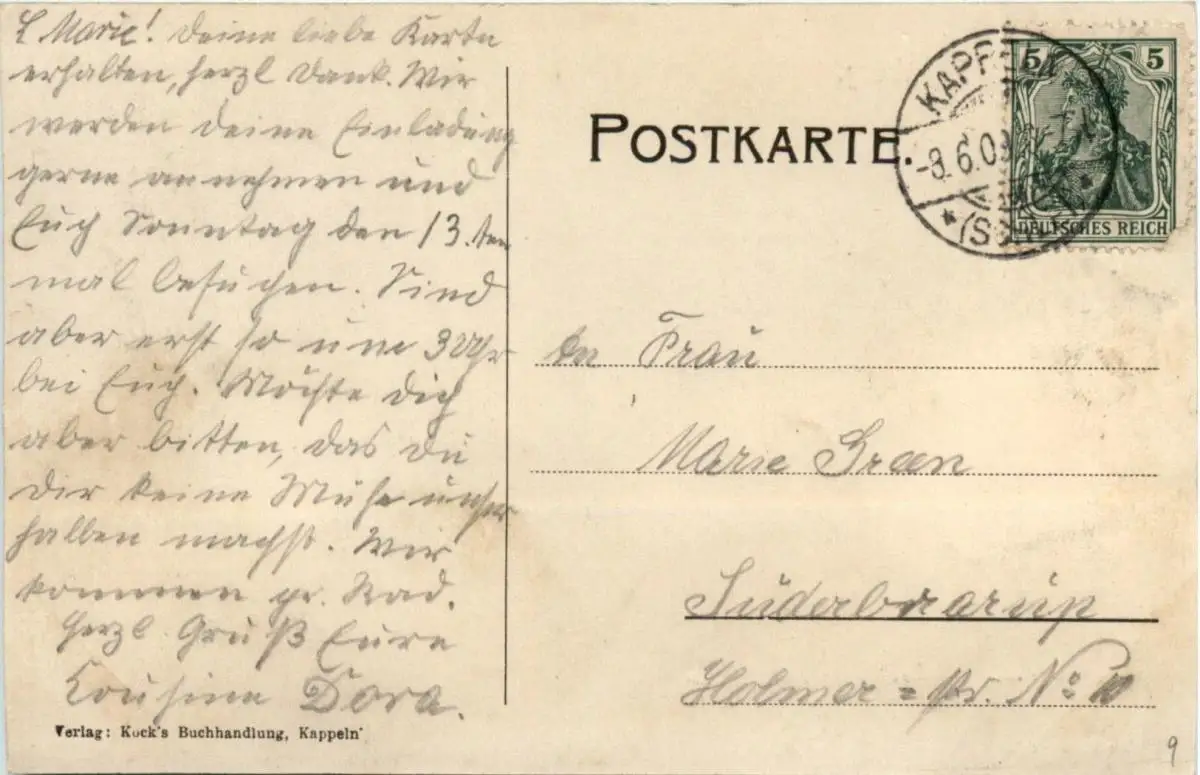 L Marie! Deine liebe Karte
erhalten, herzl Dank. Wir
werden deine Einladung
gerne annehmen und
Euch Sonntag den 13. ten
mal besuchen. Sind
aber erst so um 3 Uhr
bei Euch. Möchte dich
aber bitten, das du
dir keine Mühe unser
halben machst. Wir
kommen pr. Rad.
Herzl Gruß Eure
Cousine Dora.
Verlag: Kock's Buchhandlung, Kappeln
POSTKARTE.
KAPPELN
-8.6.09
(SCHLEI)
5 5
DEUTSCHES REICH
An Frau
Marie Green
Süderbrarup
Holmer = str. No 10
9